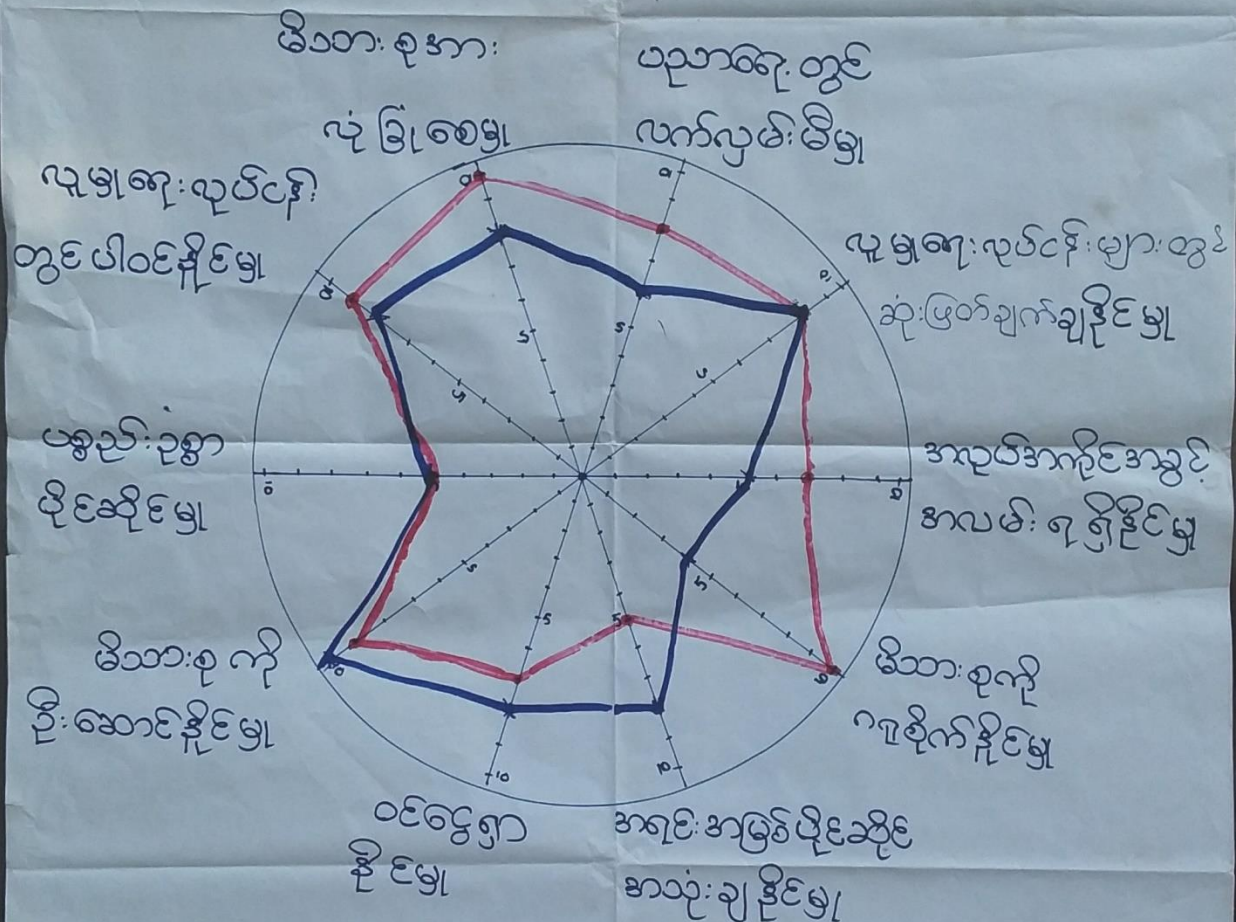 မိသားစုအား
လုံခြုံစေမှု
ပညာရေးတွင်
လက်လှမ်းမီမှု
လူမှုရေးလုပ်ငန်းများတွင်
ဆုံးဖြတ်ချက်ချနိုင်မှု
အလုပ်အကိုင်အခွင့်
အလမ်းရရှိနိုင်မှု
မိသားစုကို
ဂရုစိုက်နိုင်မှု
အရင်းအမြစ်ပိုင်ဆိုင်
အသုံးချနိုင်မှု
ဝင်ငွေရှာ
နိုင်မှု
မိသားစုကို
ဦးဆောင်နိုင်မှု
ပစ္စည်းဥစ္စာ
ပိုင်ဆိုင်မှု
လူမှုရေးလုပ်ငန်း
တွင်ပါဝင်နိုင်မှု
10
10
10
10
10
10
10
10
10
10
5
5
5
5
5
5
5